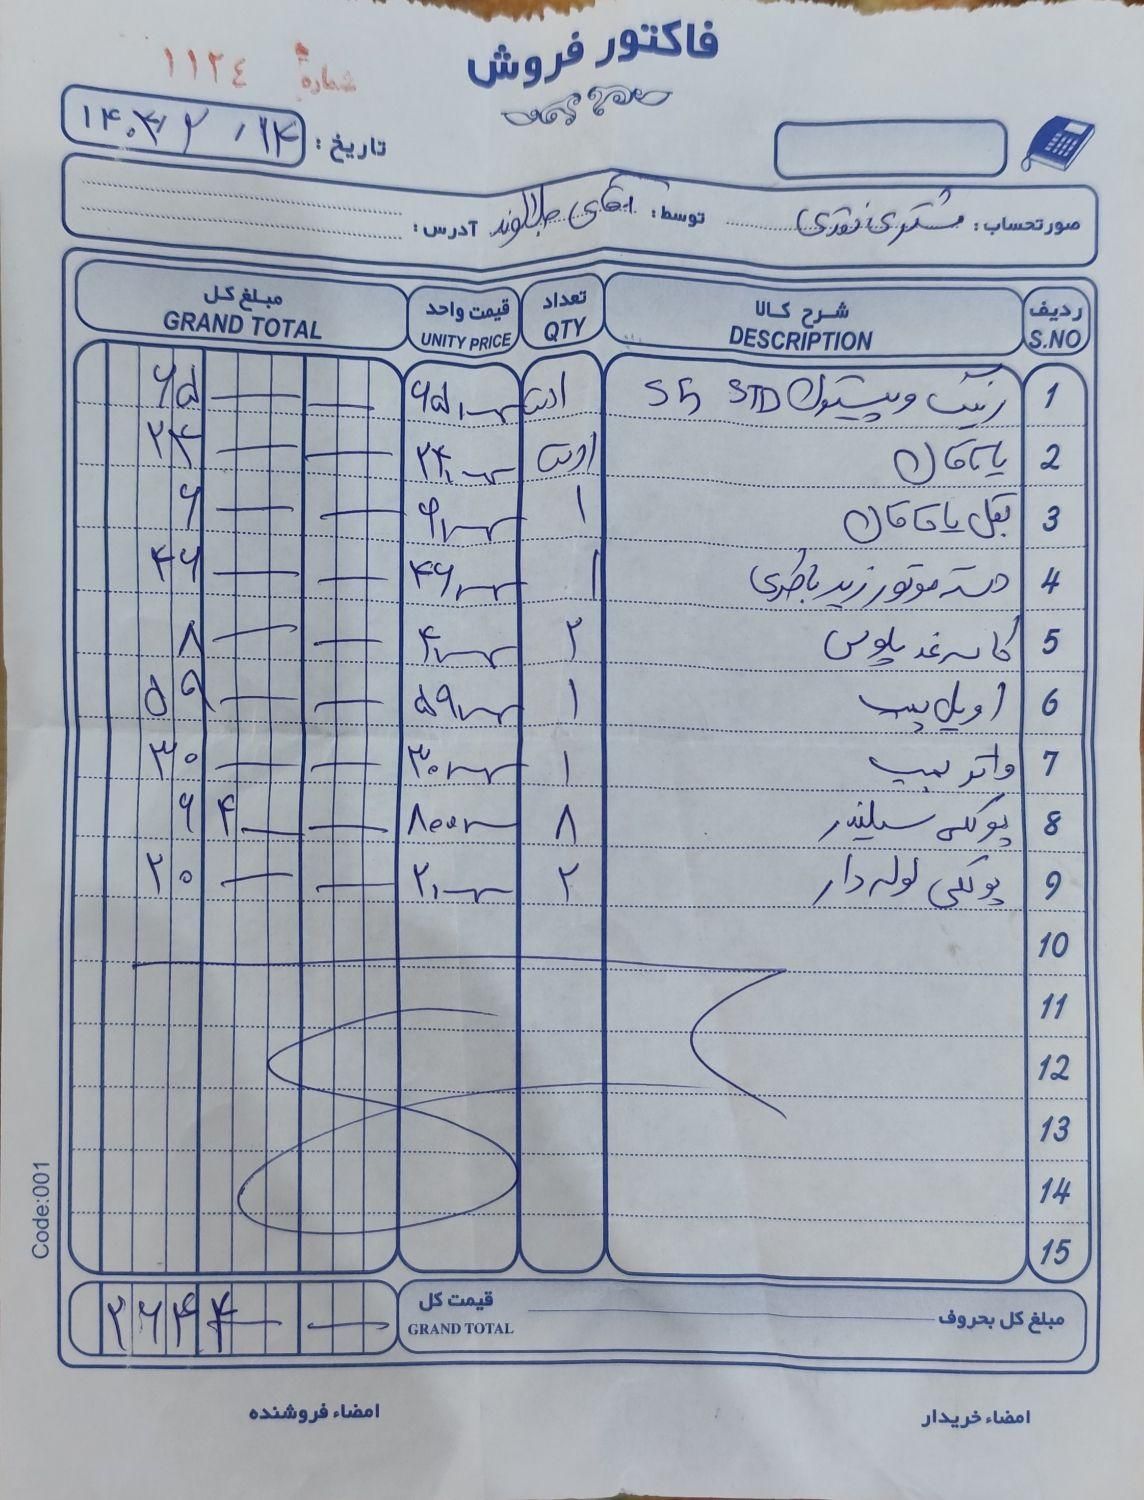 فاکتور فروش
شماره ۱۱۲٤
تاریخ : ۱۴۰۳/۲/۱۴
صورتحساب : مشتری نقدی توسط : آقای جلالوند آدرس :
ردیف S.NO شرح کالا DESCRIPTION تعداد QTY قیمت واحد UNITY PRICE مبلغ کل GRAND TOTAL
1 رینگ و پیستون S5 STD ادست ۶۵,— ۶۵ — —
2 یاتاقان ادست ۲۴,— ۲۴ — —
3 بغل یاتاقان ۱ ۶,— ۶ — —
4 دسته موتور زیر باطری ۱ ۴۶,— ۴۶ — —
5 کاسه نمد پلوس ۲ ۴,— ۸ — —
6 اویل پمپ ۱ ۵۹,— ۵۹ — —
7 واتر پمپ ۱ ۳۰,— ۳۰ — —
8 پولکی سیلندر ۸ ۸۰۰,— ۶ ۴ — —
9 پولکی لوله دار ۲ ۲,— ۲۰ — —
10
11
12
13
14
15
مبلغ کل بحروف قیمت کل GRAND TOTAL ۲۶۴۴ — —
امضاء خریدار امضاء فروشنده
Code:001